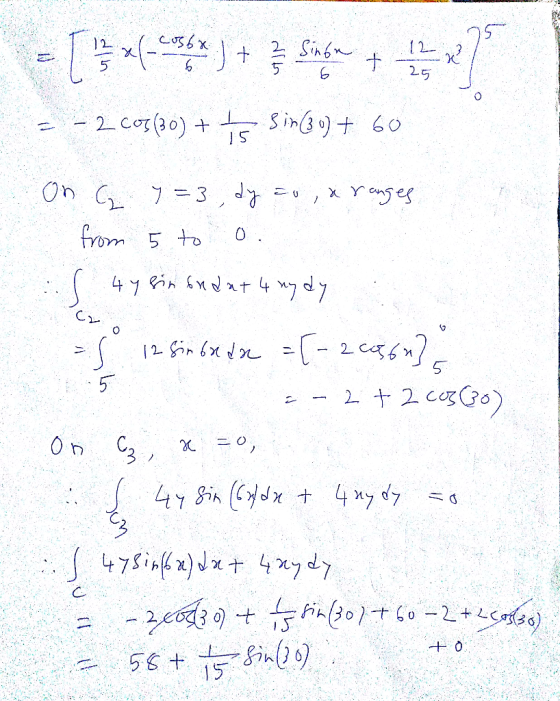 = [ 12/5 x(-cos6x/6) + 2/5 Sin6x/6 + 12/25 x³ ]₀⁵
= - 2 cos(30) + 1/15 Sin(30) + 60
On C₂ y = 3, dy = 0, x ranges
from 5 to 0.
∴ ∫_C₂ 4y sin 6x dx + 4xy dy
= ∫₅⁰ 12 Sin 6x dx = [- 2 cos6x]₅⁰
= - 2 + 2 cos(30)
On C₃, x = 0,
∴ ∫_C₃ 4y Sin (6x)dx + 4xy dy = 0
∴ ∫_C 4ySin(6x)dx + 4xy dy
= - 2cos(30) + 1/15 Sin(30) + 60 - 2 + 2cos(30)
+ 0
= 58 + 1/15 Sin(30)